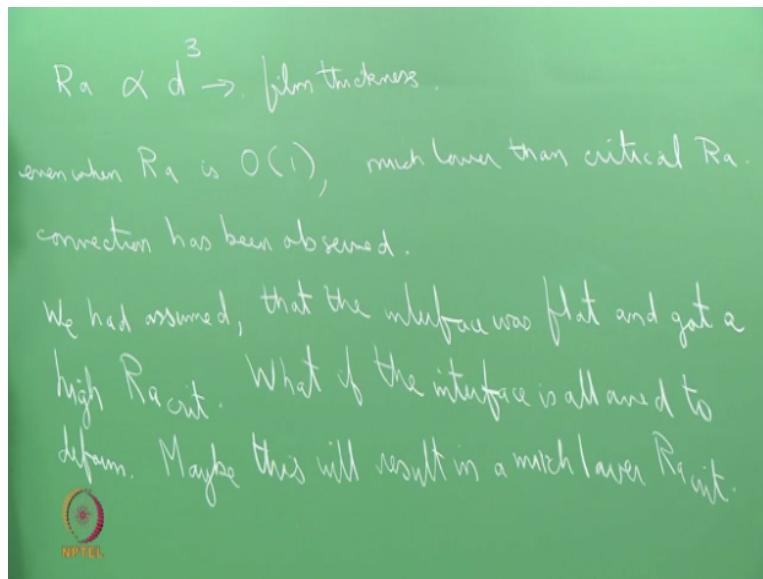 Ra ∝ d³ → film thickness.
even when Ra is O(1), much lower than critical Ra.
convection has been observed.
We had assumed, that the interface was flat and got a
high Ra crit. What if the interface is allowed to
deform. Maybe this will result in a much lower Ra crit.
NPTEL